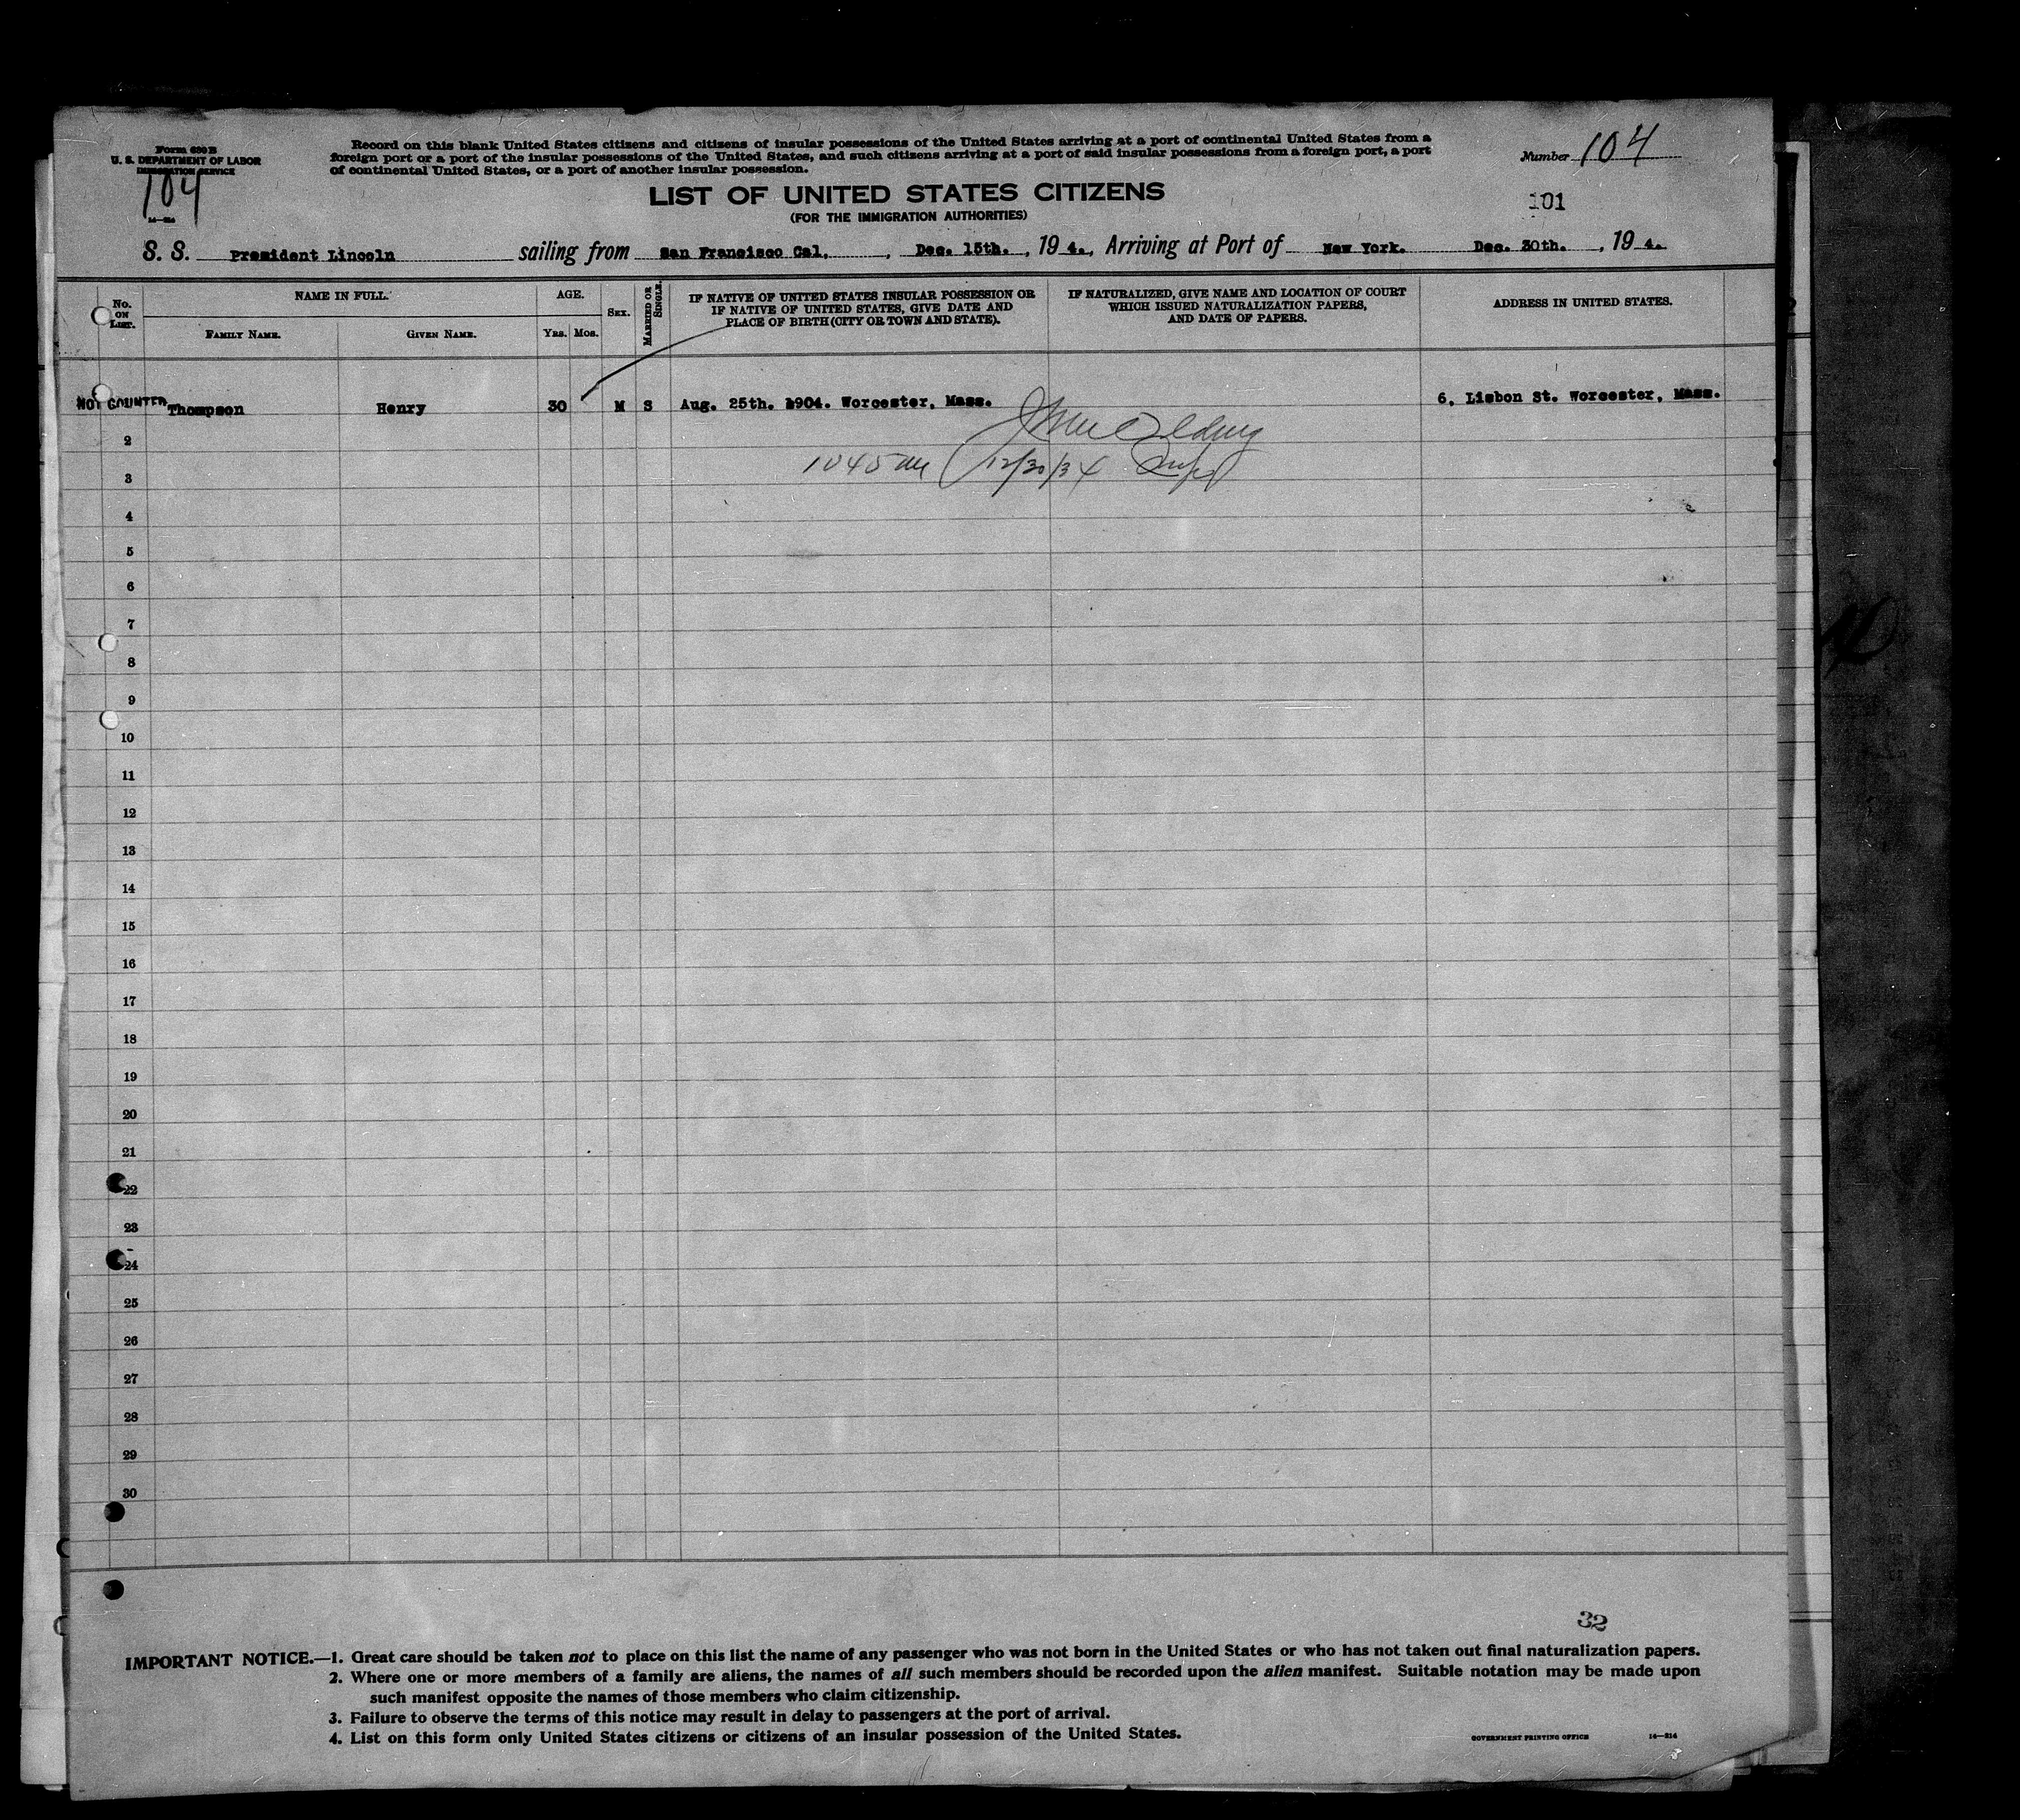 Form 630 B
U. S. DEPARTMENT OF LABOR
IMMIGRATION SERVICE
104
14—214
Record on this blank United States citizens and citizens of insular possessions of the United States arriving at a port of continental United States from a
foreign port or a port of the insular possessions of the United States, and such citizens arriving at a port of said insular possessions from a foreign port, a port
of continental United States, or a port of another insular possession.
Number 104
LIST OF UNITED STATES CITIZENS
(FOR THE IMMIGRATION AUTHORITIES)
101
S. S. President Lincoln sailing from San Francisco Cal, , Dec. 15th. , 19 4. , Arriving at Port of New York. Dec. 30th. , 19 4.
No. ON LIST.
NAME IN FULL.
FAMILY NAME.
GIVEN NAME.
AGE.
YRS. MOS.
SEX.
MARRIED OR SINGLE.
IF NATIVE OF UNITED STATES INSULAR POSSESSION OR
IF NATIVE OF UNITED STATES, GIVE DATE AND
PLACE OF BIRTH (CITY OR TOWN AND STATE).
IF NATURALIZED, GIVE NAME AND LOCATION OF COURT
WHICH ISSUED NATURALIZATION PAPERS,
AND DATE OF PAPERS.
ADDRESS IN UNITED STATES.
NOT COUNTED Thompson Henry 30 M S Aug. 25th. 1904. Worcester, Mass. 6, Lisbon St. Worcester, Mass.
2
1045 AM 12/30/34
3
4
5
6
7
8
9
10
11
12
13
14
15
16
17
18
19
20
21
22
23
24
25
26
27
28
29
30
32
IMPORTANT NOTICE.—1. Great care should be taken not to place on this list the name of any passenger who was not born in the United States or who has not taken out final naturalization papers.
2. Where one or more members of a family are aliens, the names of all such members should be recorded upon the alien manifest. Suitable notation may be made upon
such manifest opposite the names of those members who claim citizenship.
3. Failure to observe the terms of this notice may result in delay to passengers at the port of arrival.
4. List on this form only United States citizens or citizens of an insular possession of the United States.
GOVERNMENT PRINTING OFFICE 14—214